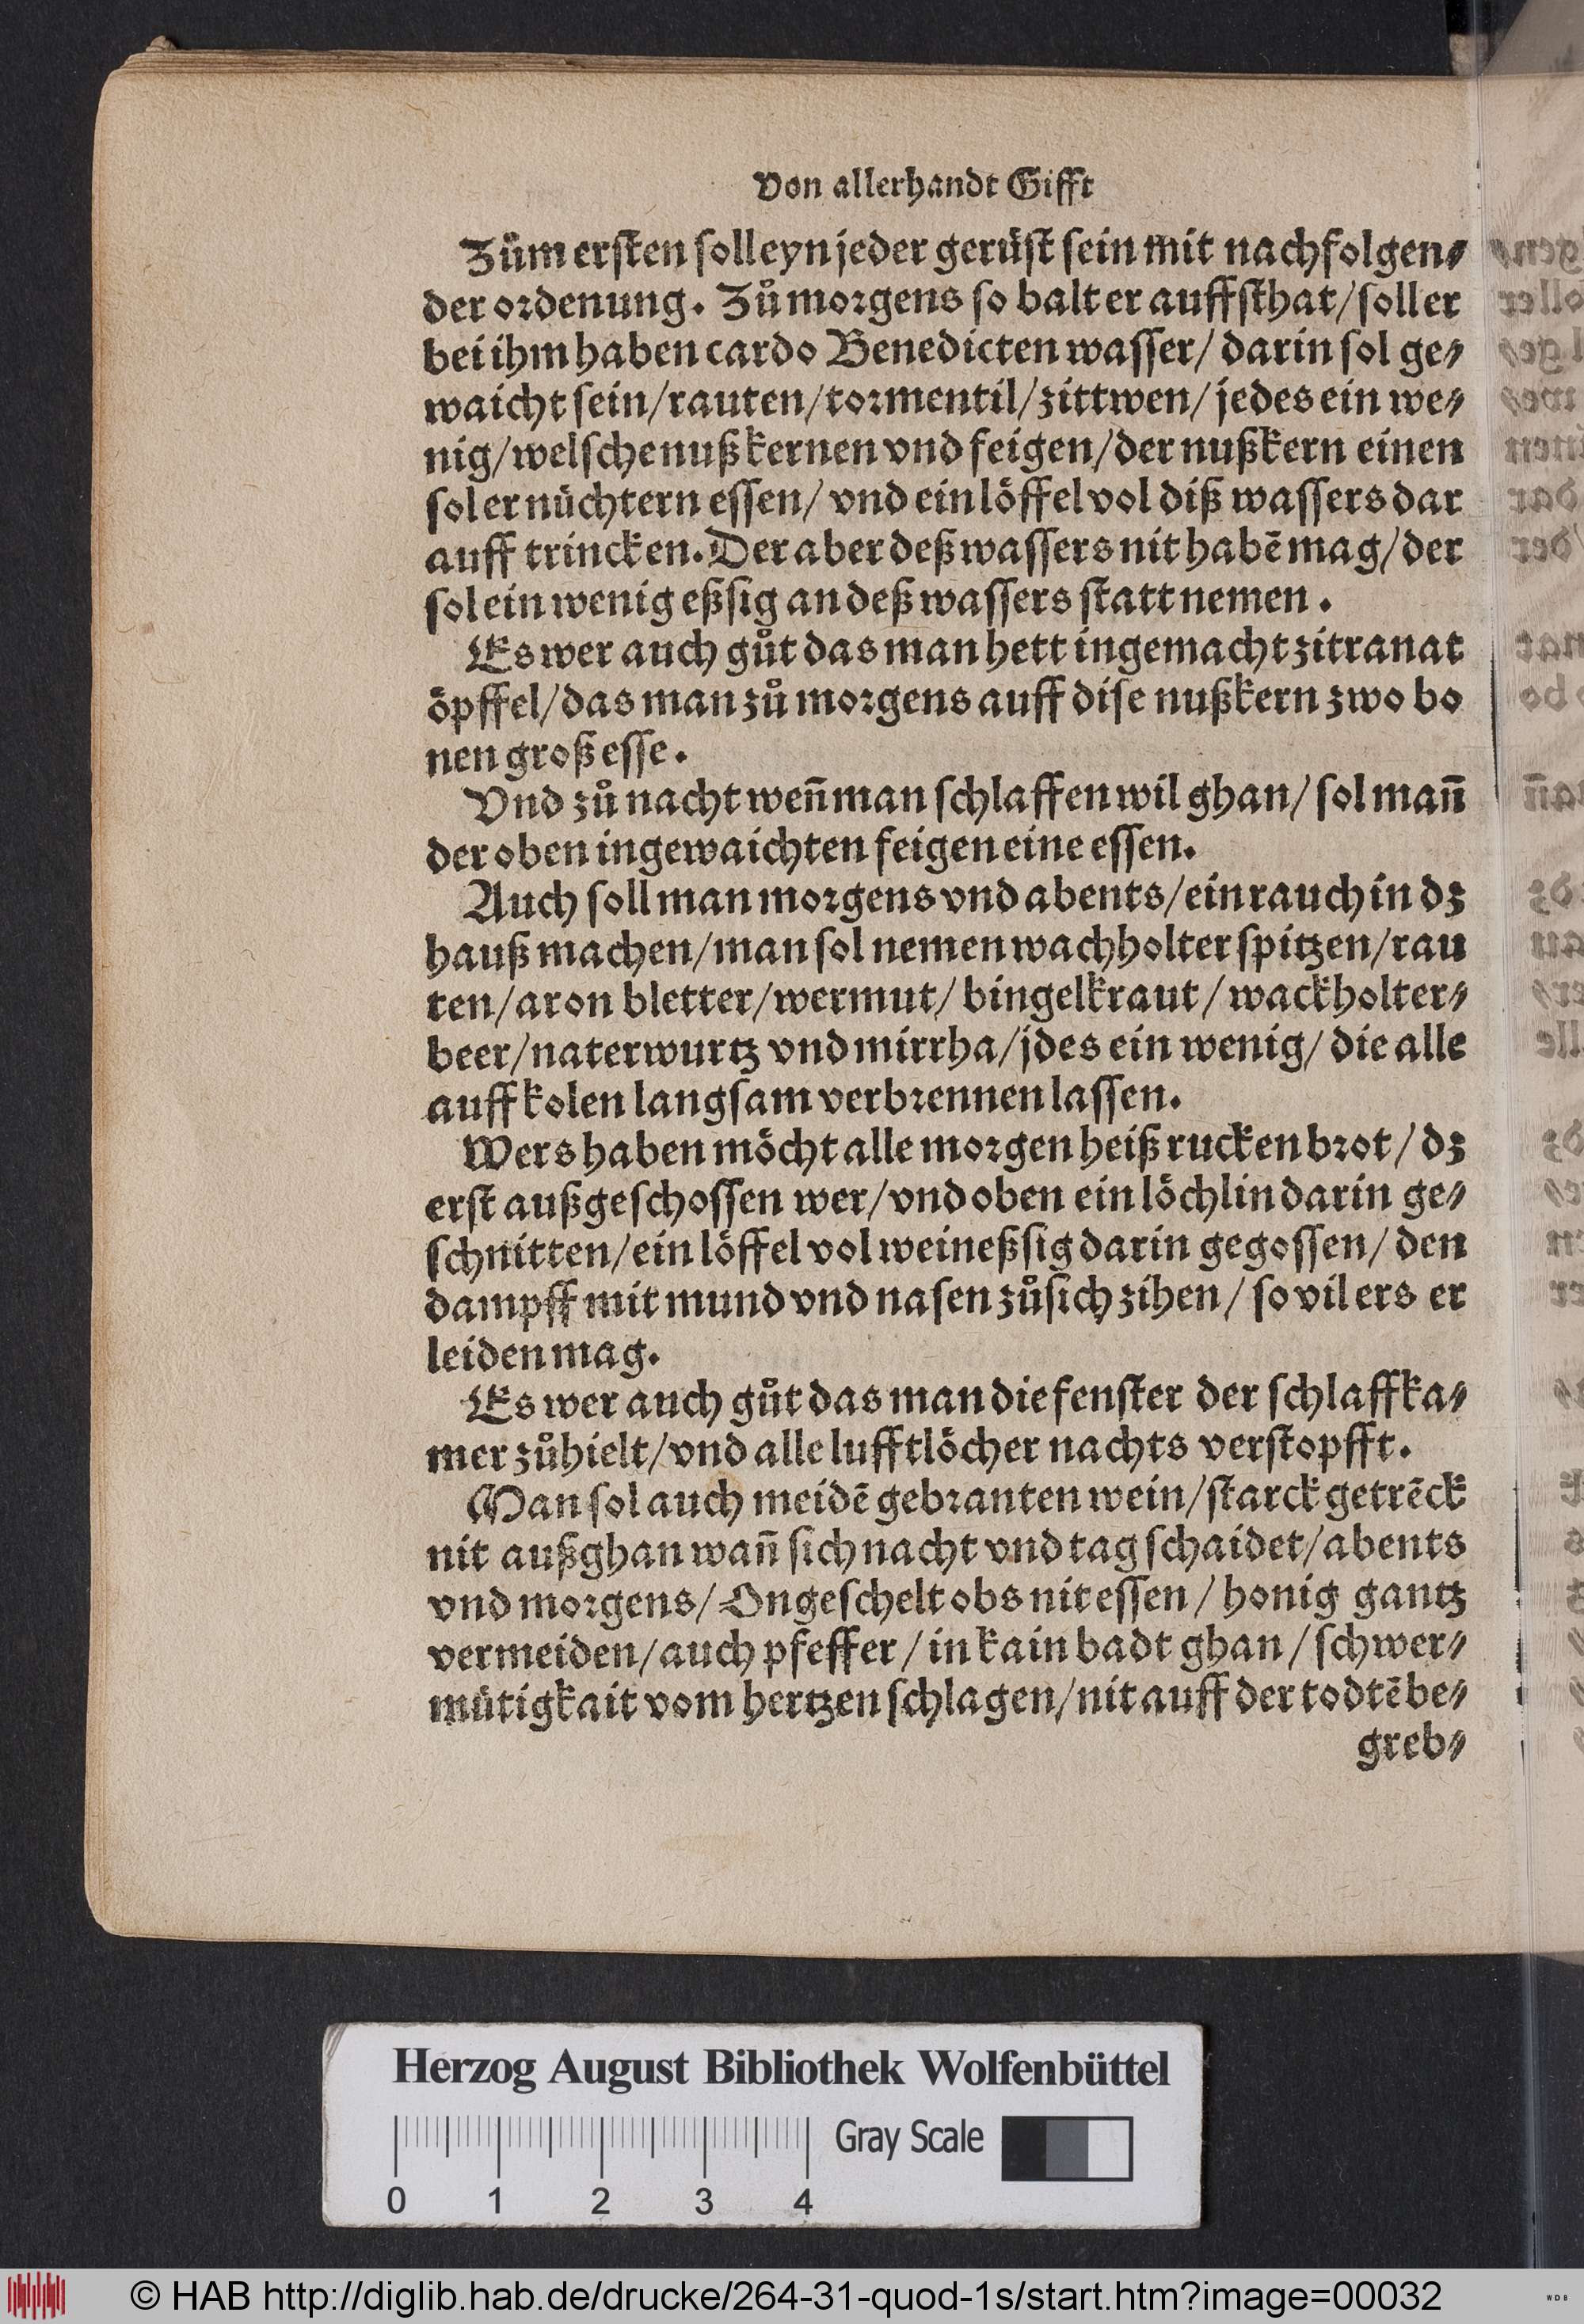 Von allerhandt Gifft
Zům ersten soll eyn jeder gerüst sein mit nachfolgen⸗
der ordenung. Zů morgens so balt er auffsthat/ soll er
bei ihm haben cardo Benedicten wasser/ darin sol ge⸗
waicht sein/ rauten/ tormentil/ zittwen/ jedes ein we⸗
nig/ welsche nußkernen vnd feigen/ der nußkern einen
sol er nüchtern essen/ vnd ein löffel vol diß wassers dar
auff trincken. Der aber deß wassers nit habē mag/ der
sol ein wenig eßsig an deß wassers statt nemen.
Es wer auch gůt das man hett ingemacht zitranat
öpffel/ das man zů morgens auff dise nußkern zwo bo
nen groß esse.
Vnd zů nacht weñ man schlaffen wil ghan/ sol mañ
der oben ingewaichten feigen eine essen.
Auch soll man morgens vnd abents/ ein rauch in dz
hauß machen/ man sol nemen wachholter spitzen/ rau
ten/ aron bletter/ wermut/ bingelkraut/ wackholter⸗
beer/ naterwurtz vnd mirrha/ jdes ein wenig/ die alle
auff kolen langsam verbrennen lassen.
Wers haben möcht alle morgen heiß rucken brot/ dz
erst außgeschossen wer/ vnd oben ein löchlin darin ge⸗
schnitten/ ein löffel vol weineßsig darin gegossen/ den
dampff mit mund vnd nasen zů sich zihen/ so vil ers er
leiden mag.
Es wer auch gůt das man die fenster der schlaffka⸗
mer zů hielt/ vnd alle lufftlöcher nachts verstopfft.
Man sol auch meidē gebranten wein/ starck getrēck
nit außghan wañ sich nacht vnd tag schaidet/ abents
vnd morgens/ Ongeschelt obs nit essen/ honig gantz
vermeiden/ auch pfeffer/ in kain badt ghan/ schwer⸗
mütigkait vom hertzen schlagen/ nit auff der todtē be⸗
greb⸗
Herzog August Bibliothek Wolfenbüttel
Gray Scale
0 1 2 3 4
© HAB http://diglib.hab.de/drucke/264-31-quod-1s/start.htm?image=00032
WDB